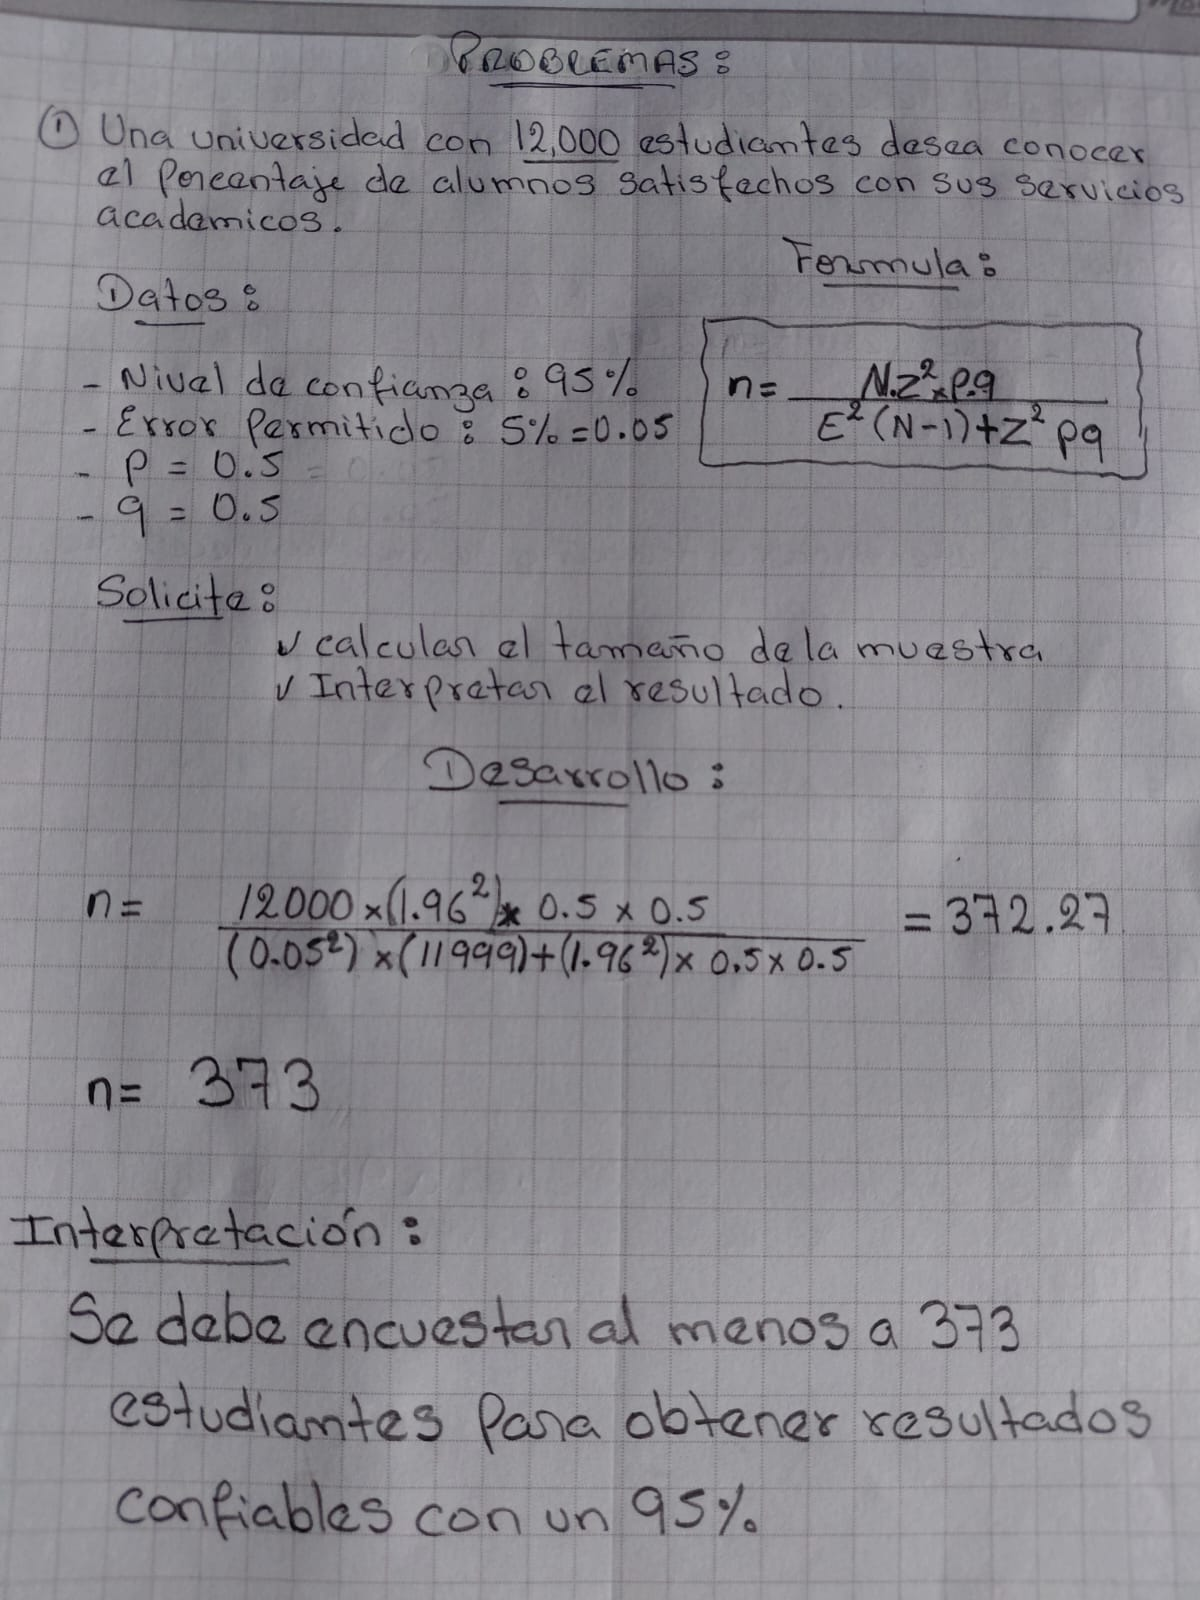 PROBLEMAS:
① Una universidad con 12,000 estudiantes desea conocer
el porcentaje de alumnos satisfechos con sus servicios
academicos.
Formula:
Datos:
- Nivel de confianza: 95%
- Error permitido: 5% = 0.05
- p = 0.5
- q = 0.5
n = N.Z²×p.q
E²(N-1)+Z² pq
Solicite:
✓ calcular el tamaño de la muestra
✓ Interpretar el resultado.
Desarrollo:
n = 12000×(1.96²)× 0.5 × 0.5 = 372.27
(0.05²)×(11999)+(1.96²)× 0.5× 0.5
n = 373
Interpretación:
Se debe encuestar al menos a 373
estudiantes para obtener resultados
confiables con un 95%.